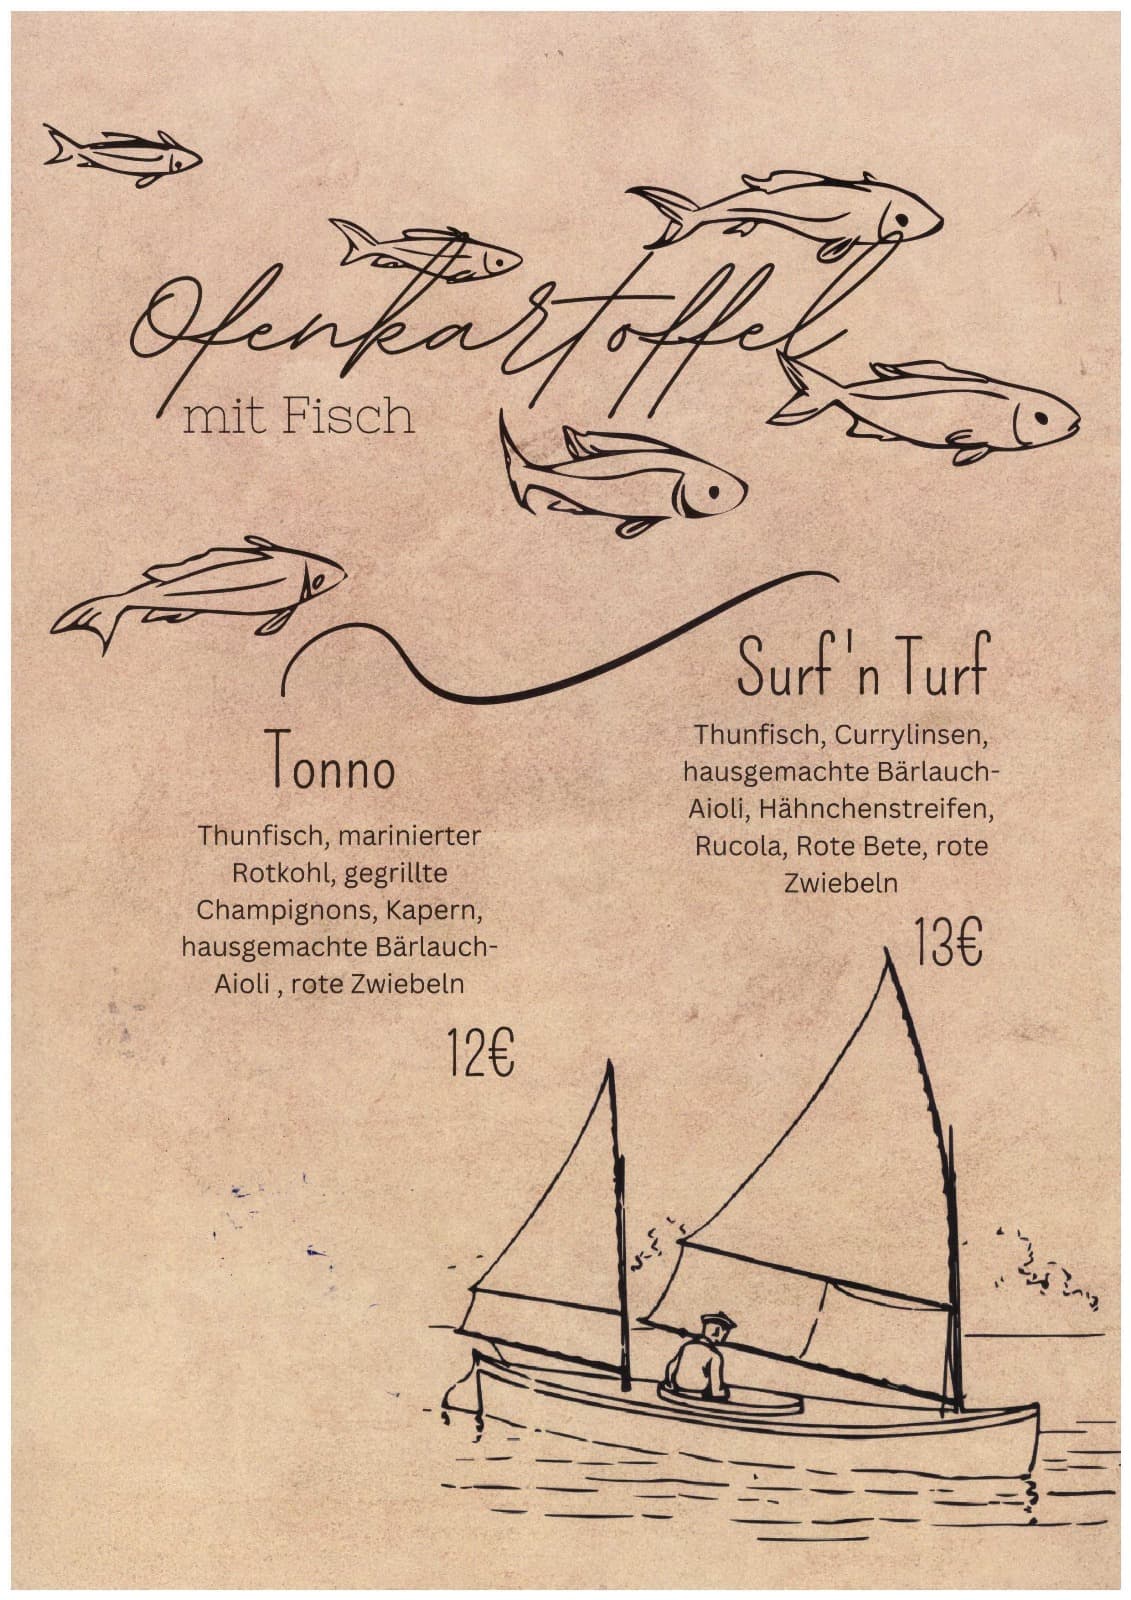 Ofenkartoffel
mit Fisch
Tonno
Thunfisch, marinierter
Rotkohl, gegrillte
Champignons, Kapern,
hausgemachte Bärlauch-
Aioli , rote Zwiebeln
12€
Surf 'n Turf
Thunfisch, Currylinsen,
hausgemachte Bärlauch-
Aioli, Hähnchenstreifen,
Rucola, Rote Bete, rote
Zwiebeln
13€